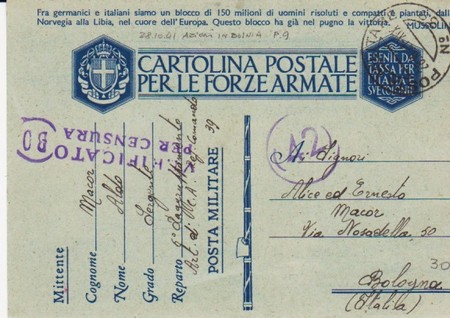 Fra germanici e italiani siamo un blocco di 150 milioni di uomini risoluti e compatti e piantati, dall
Norvegia alla Libia, nel cuore dell'Europa. Questo blocco ha già nel pugno la vittoria. MUSSOLIN
28.10.41 P.9
CARTOLINA POSTALE
PER LE FORZE ARMATE
ESENTE DA
TASSA PER
L'ITALIA E
SVE
PO
N°
VERIFICATO
PER CENSURA
BO
A2
Mittente
Cognome Macor
Nome Aldo
Grado Sergente
Reparto 5° Raggruppamento
Art. di Comando
POSTA MILITARE 39
Ai Signori
Alice ed Ernesto
Macor
Via Nosadella, 50
30
Bologna
(Italia)